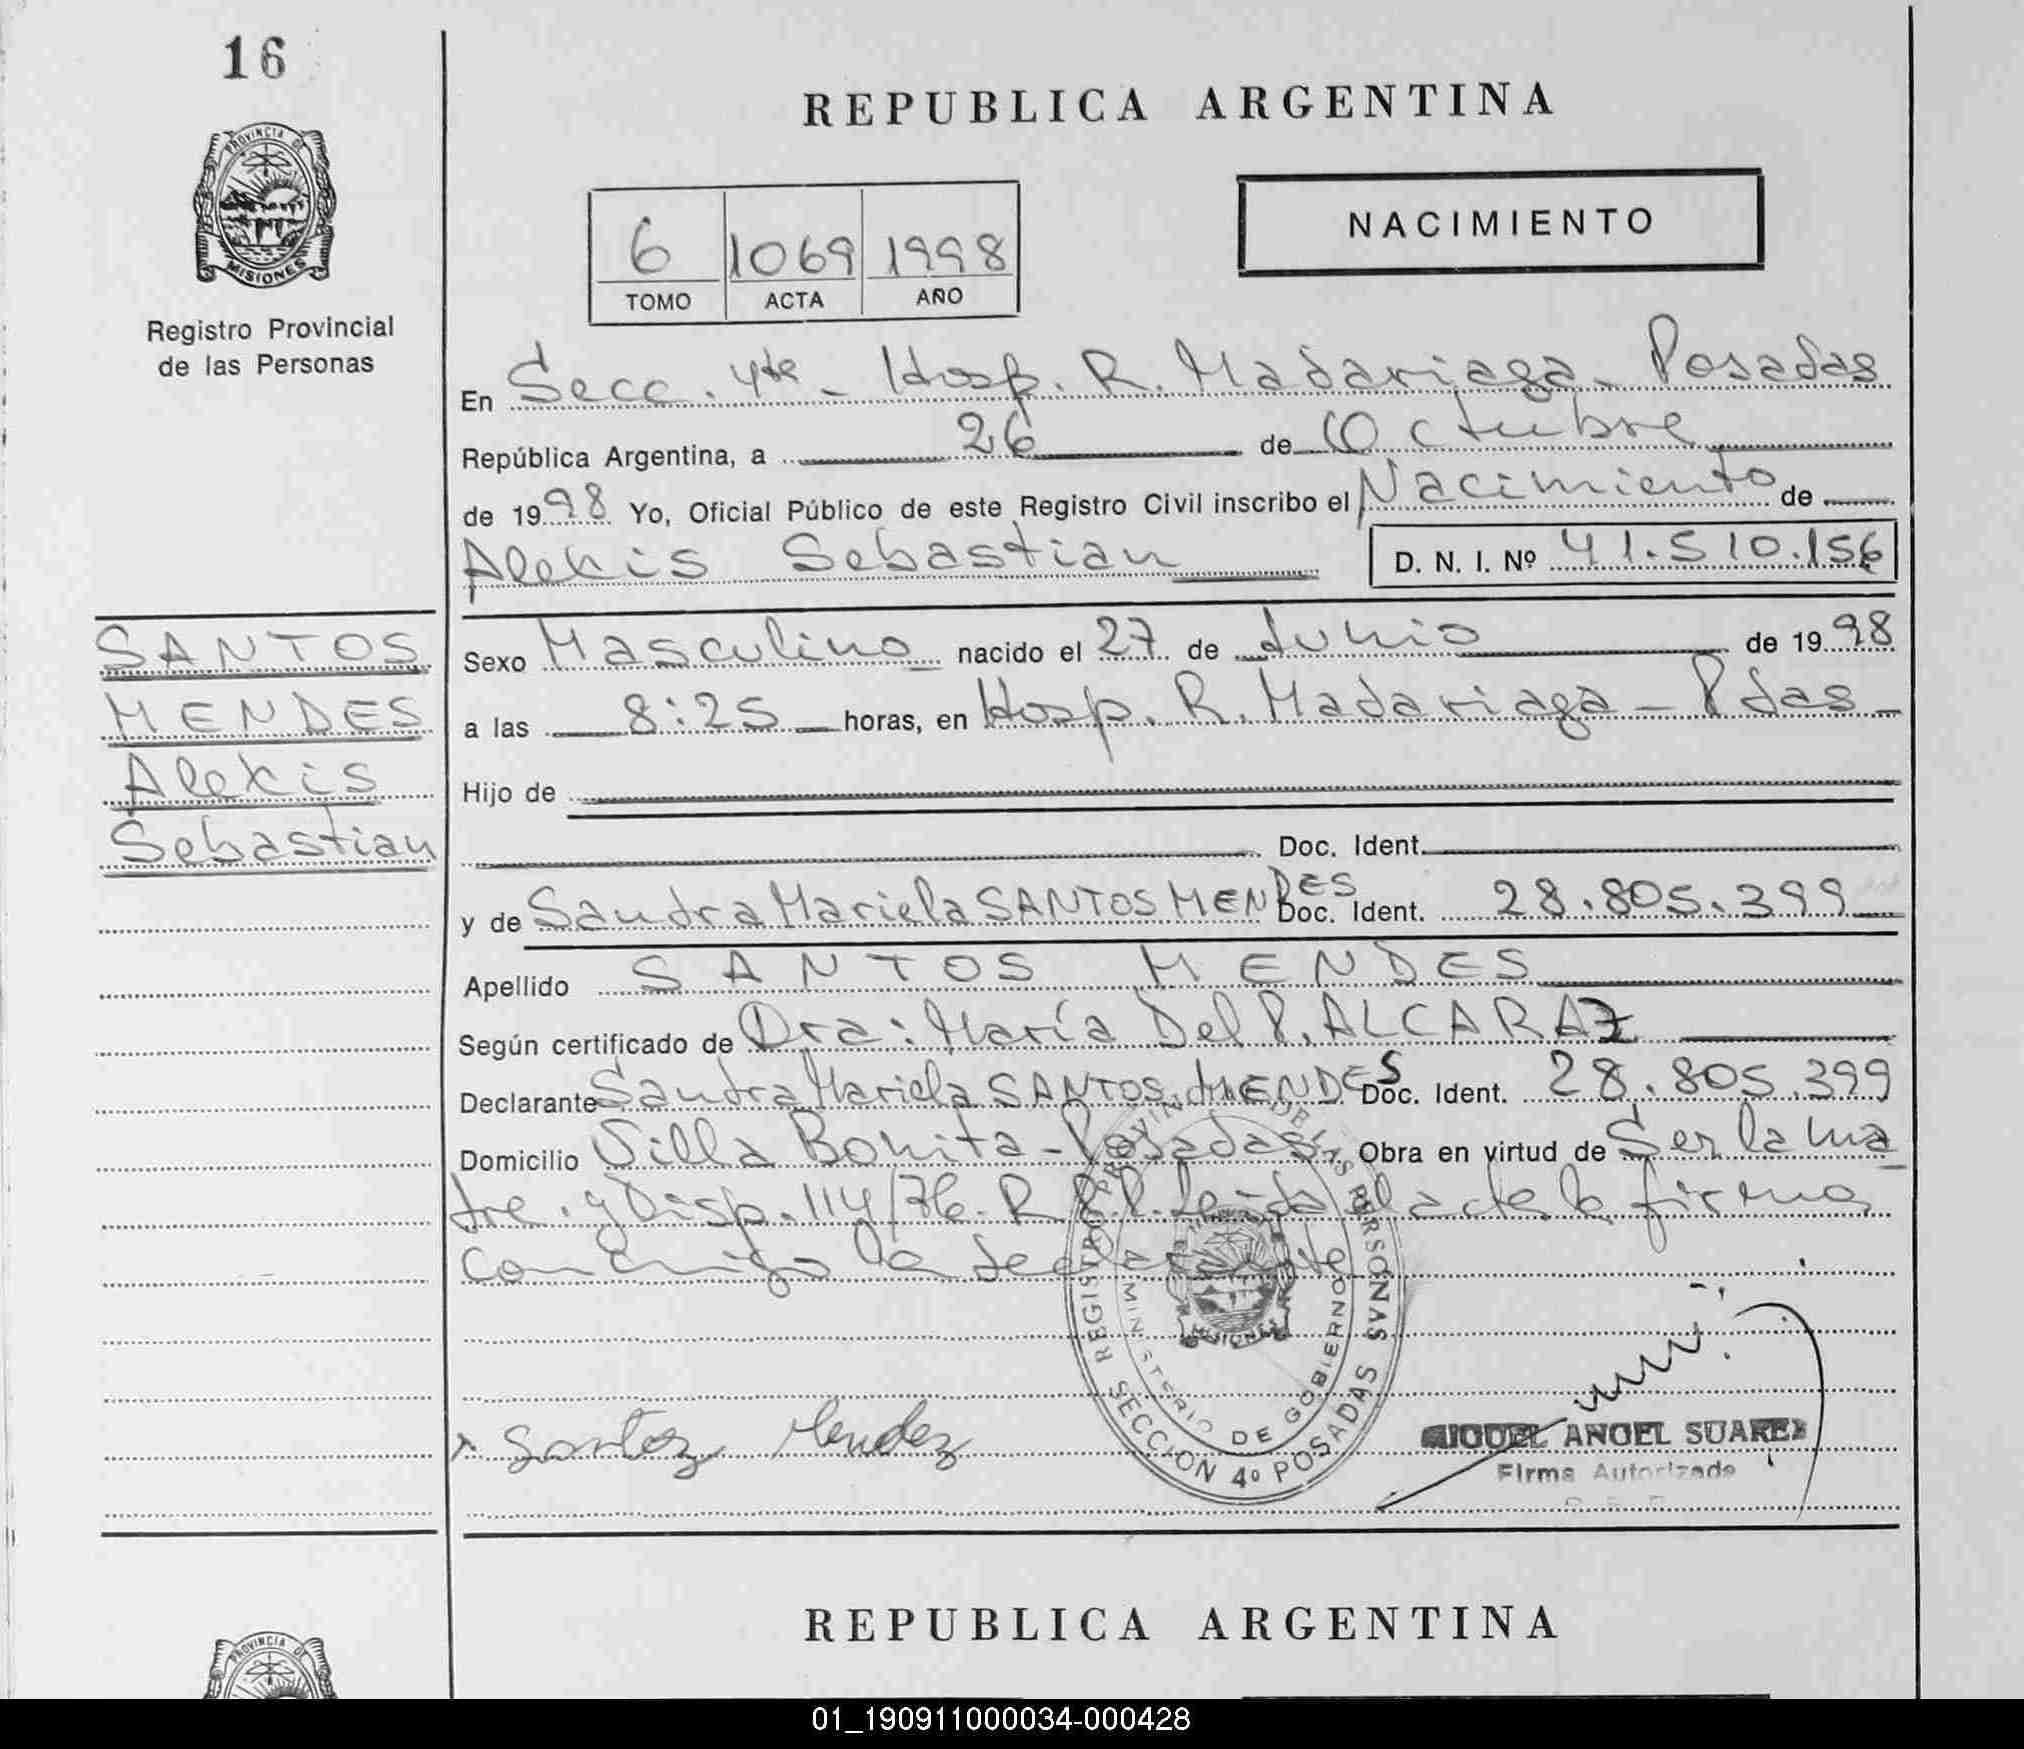 16
PROVINCIA DE
MISIONES
Registro Provincial
de las Personas
SANTOS
MENDES
Alexis
Sebastian
REPUBLICA ARGENTINA
NACIMIENTO
6 1069 1998
TOMO ACTA AÑO
En Secc. 4ta - Hosp. R. Madariaga - Posadas
República Argentina, a 26 de Octubre
de 1998 Yo, Oficial Público de este Registro Civil inscribo el Nacimiento de
Alexis Sebastian D. N. I. Nº 41.510.156
Sexo Masculino nacido el 27 de Junio de 1998
a las 8:25 horas, en Hosp. R. Madariaga - Pdas -
Hijo de
Doc. Ident.
y de Sandra Mariela SANTOS MENDES Doc. Ident. 28.805.399
Apellido SANTOS MENDES
Según certificado de Dra: María Del P. ALCARAZ
Declarante Sandra Mariela SANTOS MENDES Doc. Ident. 28.805.399
Domicilio Villa Bonita - Posadas Obra en virtud de Ser la ma
dre. y Disp. 114/76. R.P.P. Leida el acta la firma
conmigo la declarante
REGISTRO PROVINCIAL DE LAS PERSONAS
MINISTERIO DE GOBIERNO
MISIONES
SECCION 4º POSADAS
Santoz Mendez
MIGUEL ANGEL SUAREZ
Firma Autorizada
REPUBLICA ARGENTINA
PROVINCIA DE
01_190911000034-000428